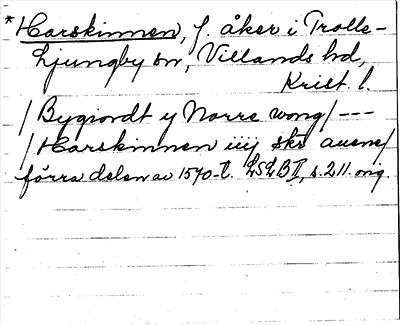 *Harskinnen, f. åker i Trolle-
Ljungby sn, Villands hd,
Krist. l.
/Bygiordt y Norre wong/ ---
/Harskinnen iiij skr auene/
förra delen av 1570-t. LSLB II, s. 211. orig.